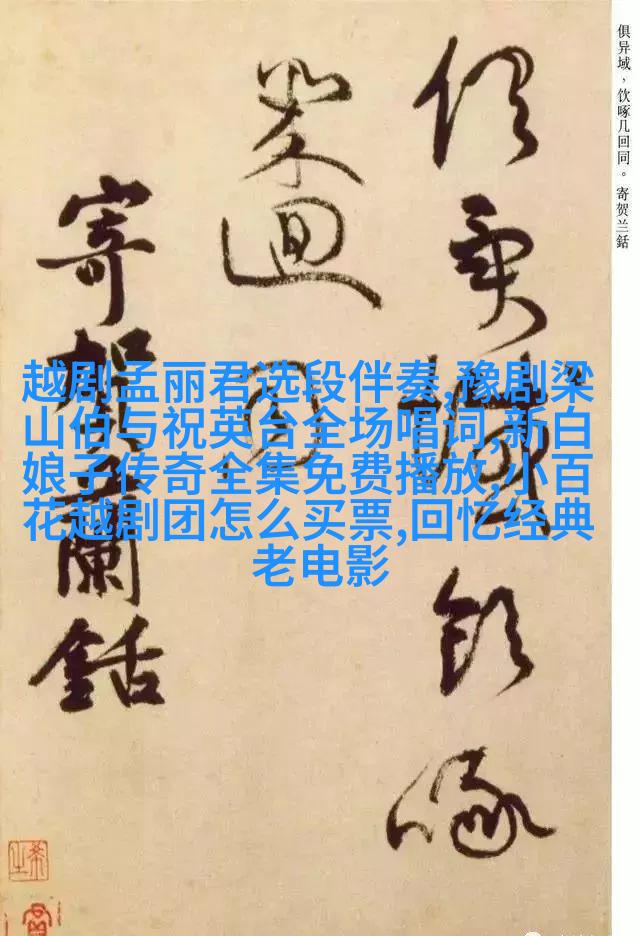 俱异域，饮啄几回同。寄贺兰銛
俱異域飲啄
幾迴同
寄賀蘭銛
越剧孟丽君选段伴奏,豫剧梁
山伯与祝英台全场唱词,新白
娘子传奇全集免费播放,小百
花越剧团怎么买票,回忆经典
老电影